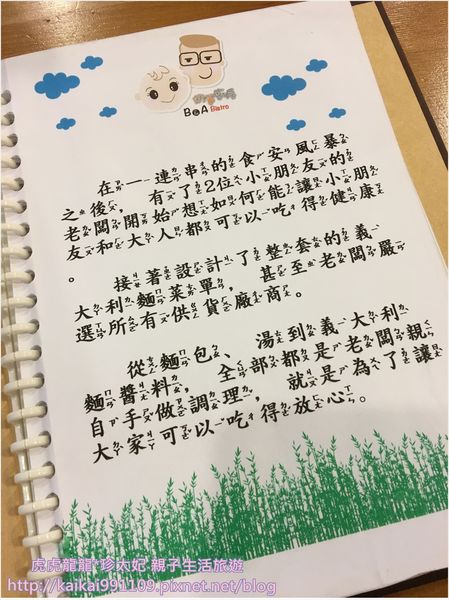 BoA Bistro
在一連串的食安風暴
之後，有了2位小朋友的
老闆開始想如何能讓小朋
友和大人都可以吃得健康
。
接著設計了整套的義
大利麵菜單，甚至老闆嚴
選所有供貨廠商。
從麵包、湯到義大利
麵醬料，全部都是老闆親
自手做調理，就是為了讓
大家可以吃得放心。
虎虎龍龍*珍太妃 親子生活旅遊
http://kaikai991109.pixnet.net/blog